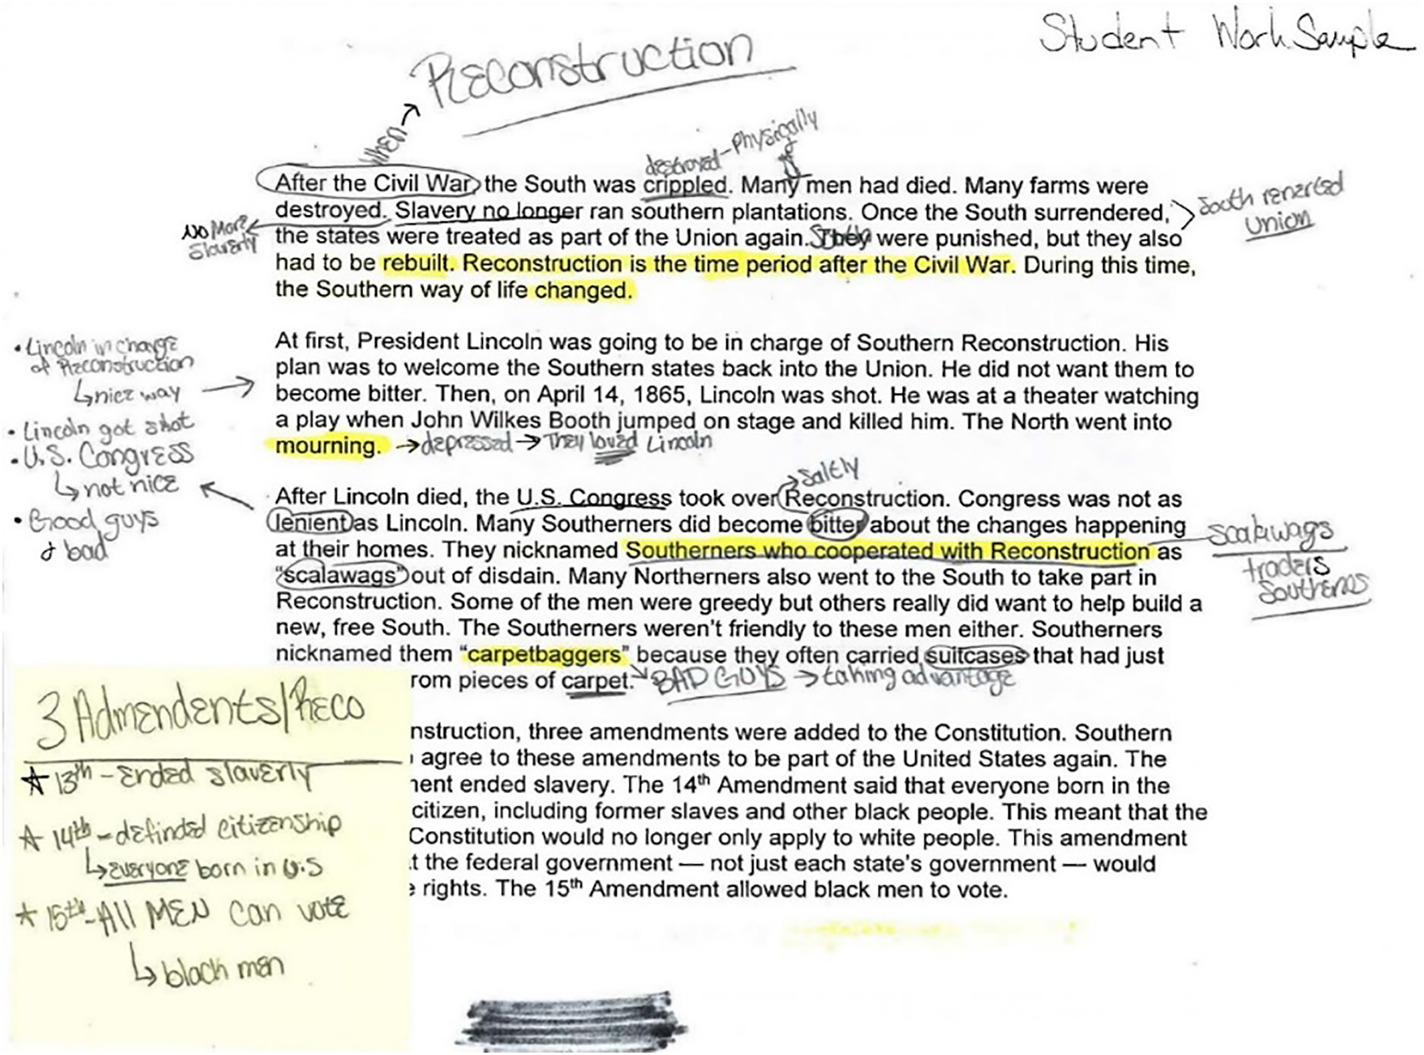 Student Work Sample
Reconstruction
When →
destroyed - Physically
After the Civil War, the South was crippled. Many men had died. Many farms were
destroyed. Slavery no longer ran southern plantations. Once the South surrendered,
the states were treated as part of the Union again. They were punished, but they also
had to be rebuilt. Reconstruction is the time period after the Civil War. During this time,
the Southern way of life changed.
No More
Slaverly
South
Union
At first, President Lincoln was going to be in charge of Southern Reconstruction. His
plan was to welcome the Southern states back into the Union. He did not want them to
become bitter. Then, on April 14, 1865, Lincoln was shot. He was at a theater watching
a play when John Wilkes Booth jumped on stage and killed him. The North went into
mourning. → depressed → They loved Lincoln
• Lincoln in charge
of Reconstruction
↳ nice way
• Lincoln got shot
• U.S. Congress
↳ not nice
• Good guys
& bad
Saltly
After Lincoln died, the U.S. Congress took over Reconstruction. Congress was not as
lenient as Lincoln. Many Southerners did become bitter about the changes happening
at their homes. They nicknamed Southerners who cooperated with Reconstruction as
"scalawags" out of disdain. Many Northerners also went to the South to take part in
Reconstruction. Some of the men were greedy but others really did want to help build a
new, free South. The Southerners weren't friendly to these men either. Southerners
nicknamed them "carpetbaggers" because they often carried suitcases that had just
rom pieces of carpet. BAD GUYS → taking advantage
traders
nstruction, three amendments were added to the Constitution. Southern
agree to these amendments to be part of the United States again. The
nent ended slavery. The 14th Amendment said that everyone born in the
citizen, including former slaves and other black people. This meant that the
Constitution would no longer only apply to white people. This amendment
t the federal government — not just each state's government — would
e rights. The 15th Amendment allowed black men to vote.
3 Admendents/Reco
☆ 13th - Ended slaverly
☆ 14th - definded citizenship
↳ everyone born in U.S
☆ 15th - All MEN can vote
↳ black men